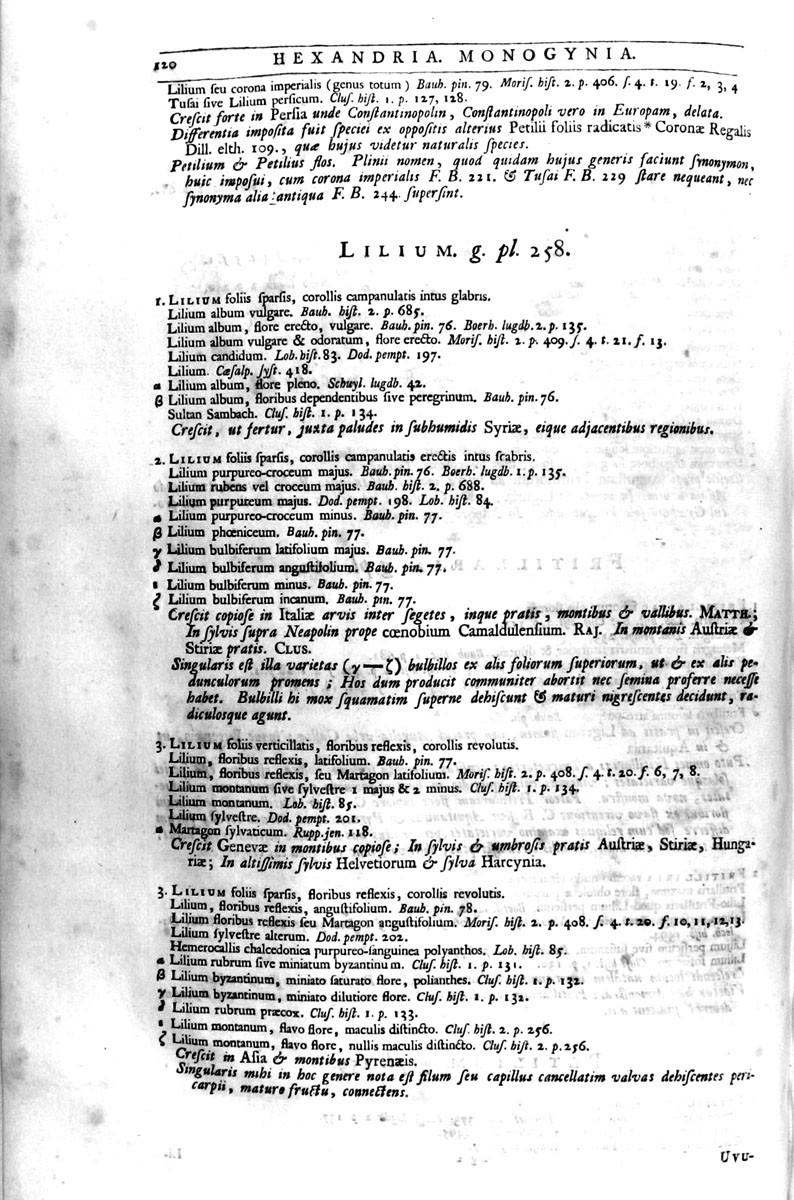 120
HEXANDRIA. MONOGYNIA.
Lilium ſeu corona imperialis (genus totum) Bauh. pin. 79. Moriſ. hiſt. 2. p. 406. ſ. 4. t. 19. f. 2, 3, 4
Tuſai ſive Lilium perſicum. Cluſ. hiſt. 1. p. 127, 128.
Creſcit forte in Perſia unde Conſtantinopolin, Conſtantinopoli vero in Europam, delata.
Differentia impoſita fuit ſpeciei ex oppoſitis alterius Petilii foliis radicatis * Coronæ Regalis
Dill. elth. 109., quæ hujus videtur naturalis ſpecies.
Petilium & Petilius flos. Plinii nomen, quod quidam hujus generis faciunt ſynonymon,
huic impoſui, cum corona imperialis F. B. 221. & Tuſai F. B. 229 ſtare nequeant, nec
ſynonyma alia antiqua F. B. 244. ſuperſint.
LILIUM. g. pl. 258.
1. LILIUM foliis ſparſis, corollis campanulatis intus glabris.
Lilium album vulgare. Bauh. hiſt. 2. p. 685.
Lilium album, flore erecto, vulgare. Bauh. pin. 76. Boerh. lugdb. 2. p. 135.
Lilium album vulgare & odoratum, flore erecto. Moriſ. hiſt. 2. p. 409. ſ. 4. t. 21. f. 13.
Lilium candidum. Lob. hiſt. 83. Dod. pempt. 197.
Lilium. Cæſalp. ſyſt. 418.
α Lilium album, flore pleno. Schuyl. lugdb. 42.
β Lilium album, floribus dependentibus ſive peregrinum. Bauh. pin. 76.
Sultan Sambach. Cluſ. hiſt. 1. p. 134.
Creſcit, ut fertur, juxta paludes in ſubhumidis Syriæ, eique adjacentibus regionibus.
2. LILIUM foliis ſparſis, corollis campanulatis erectis intus ſcabris.
Lilium purpureo-croceum majus. Bauh. pin. 76. Boerh. lugdb. 1. p. 135.
Lilium rubens vel croceum majus. Bauh. hiſt. 2. p. 688.
Lilium purpureum majus. Dod. pempt. 198. Lob. hiſt. 84.
α Lilium purpureo-croceum minus. Bauh. pin. 77.
β Lilium phœniceum. Bauh. pin. 77.
γ Lilium bulbiferum latifolium majus. Bauh. pin. 77.
δ Lilium bulbiferum anguſtifolium. Bauh. pin. 77.
ε Lilium bulbiferum minus. Bauh. pin. 77.
ζ Lilium bulbiferum incanum. Bauh. pin. 77.
Creſcit copioſe in Italiæ arvis inter ſegetes, inque pratis, montibus & vallibus. MATTH.;
In ſylvis ſupra Neapolin prope cœnobium Camaldulenſium. RAJ. In montanis Auſtriæ &
Stiriæ pratis. CLUS.
Singularis eſt illa varietas (γ—ζ) bulbillos ex alis foliorum ſuperiorum, ut & ex alis pe-
dunculorum promens; Hos dum producit communiter abortit nec ſemina proferre neceſſe
habet. Bulbilli hi mox ſquamatim ſuperne dehiſcunt & maturi nigreſcentes decidunt, ra-
diculosque agunt.
3. LILIUM foliis verticillatis, floribus reflexis, corollis revolutis.
Lilium, floribus reflexis, latifolium. Bauh. pin. 77.
Lilium, floribus reflexis, ſeu Martagon latifolium. Moriſ. hiſt. 2. p. 408. ſ. 4. t. 20. f. 6, 7, 8.
Lilium montanum ſive ſylveſtre 1 majus & 2 minus. Cluſ. hiſt. 1. p. 134.
Lilium montanum. Lob. hiſt. 85.
Lilium ſylveſtre. Dod. pempt. 201.
α Martagon ſylvaticum. Rupp. jen. 118.
Creſcit Genevæ in montibus copioſe; In ſylvis & umbroſis pratis Auſtriæ, Stiriæ, Hunga-
riæ; In altiſſimis ſylvis Helvetiorum & ſylva Harcynia.
3. LILIUM foliis ſparſis, floribus reflexis, corollis revolutis.
Lilium, floribus reflexis, anguſtifolium. Bauh. pin. 78.
Lilium floribus reflexis ſeu Martagon anguſtifolium. Moriſ. hiſt. 2. p. 408. ſ. 4. t. 20. f. 10, 11, 12, 13.
Lilium ſylveſtre alterum. Dod. pempt. 202.
Hemerocallis chalcedonica purpureo-ſanguinea polyanthos. Lob. hiſt. 85.
α Lilium rubrum ſive miniatum byzantinum. Cluſ. hiſt. 1. p. 131.
β Lilium byzantinum, miniato ſaturato flore, polianthes. Cluſ. hiſt. 1. p. 132.
γ Lilium byzantinum, miniato dilutiore flore. Cluſ. hiſt. 1. p. 132.
δ Lilium rubrum præcox. Cluſ. hiſt. 1. p. 133.
ε Lilium montanum, flavo flore, maculis diſtincto. Cluſ. hiſt. 2. p. 256.
ζ Lilium montanum, flavo flore, nullis maculis diſtincto. Cluſ. hiſt. 2. p. 256.
Creſcit in Aſia & montibus Pyrenæis.
Singularis mihi in hoc genere nota eſt filum ſeu capillus cancellatim valvas dehiſcentes peri-
carpii, maturo fructu, connectens.
Uvu-